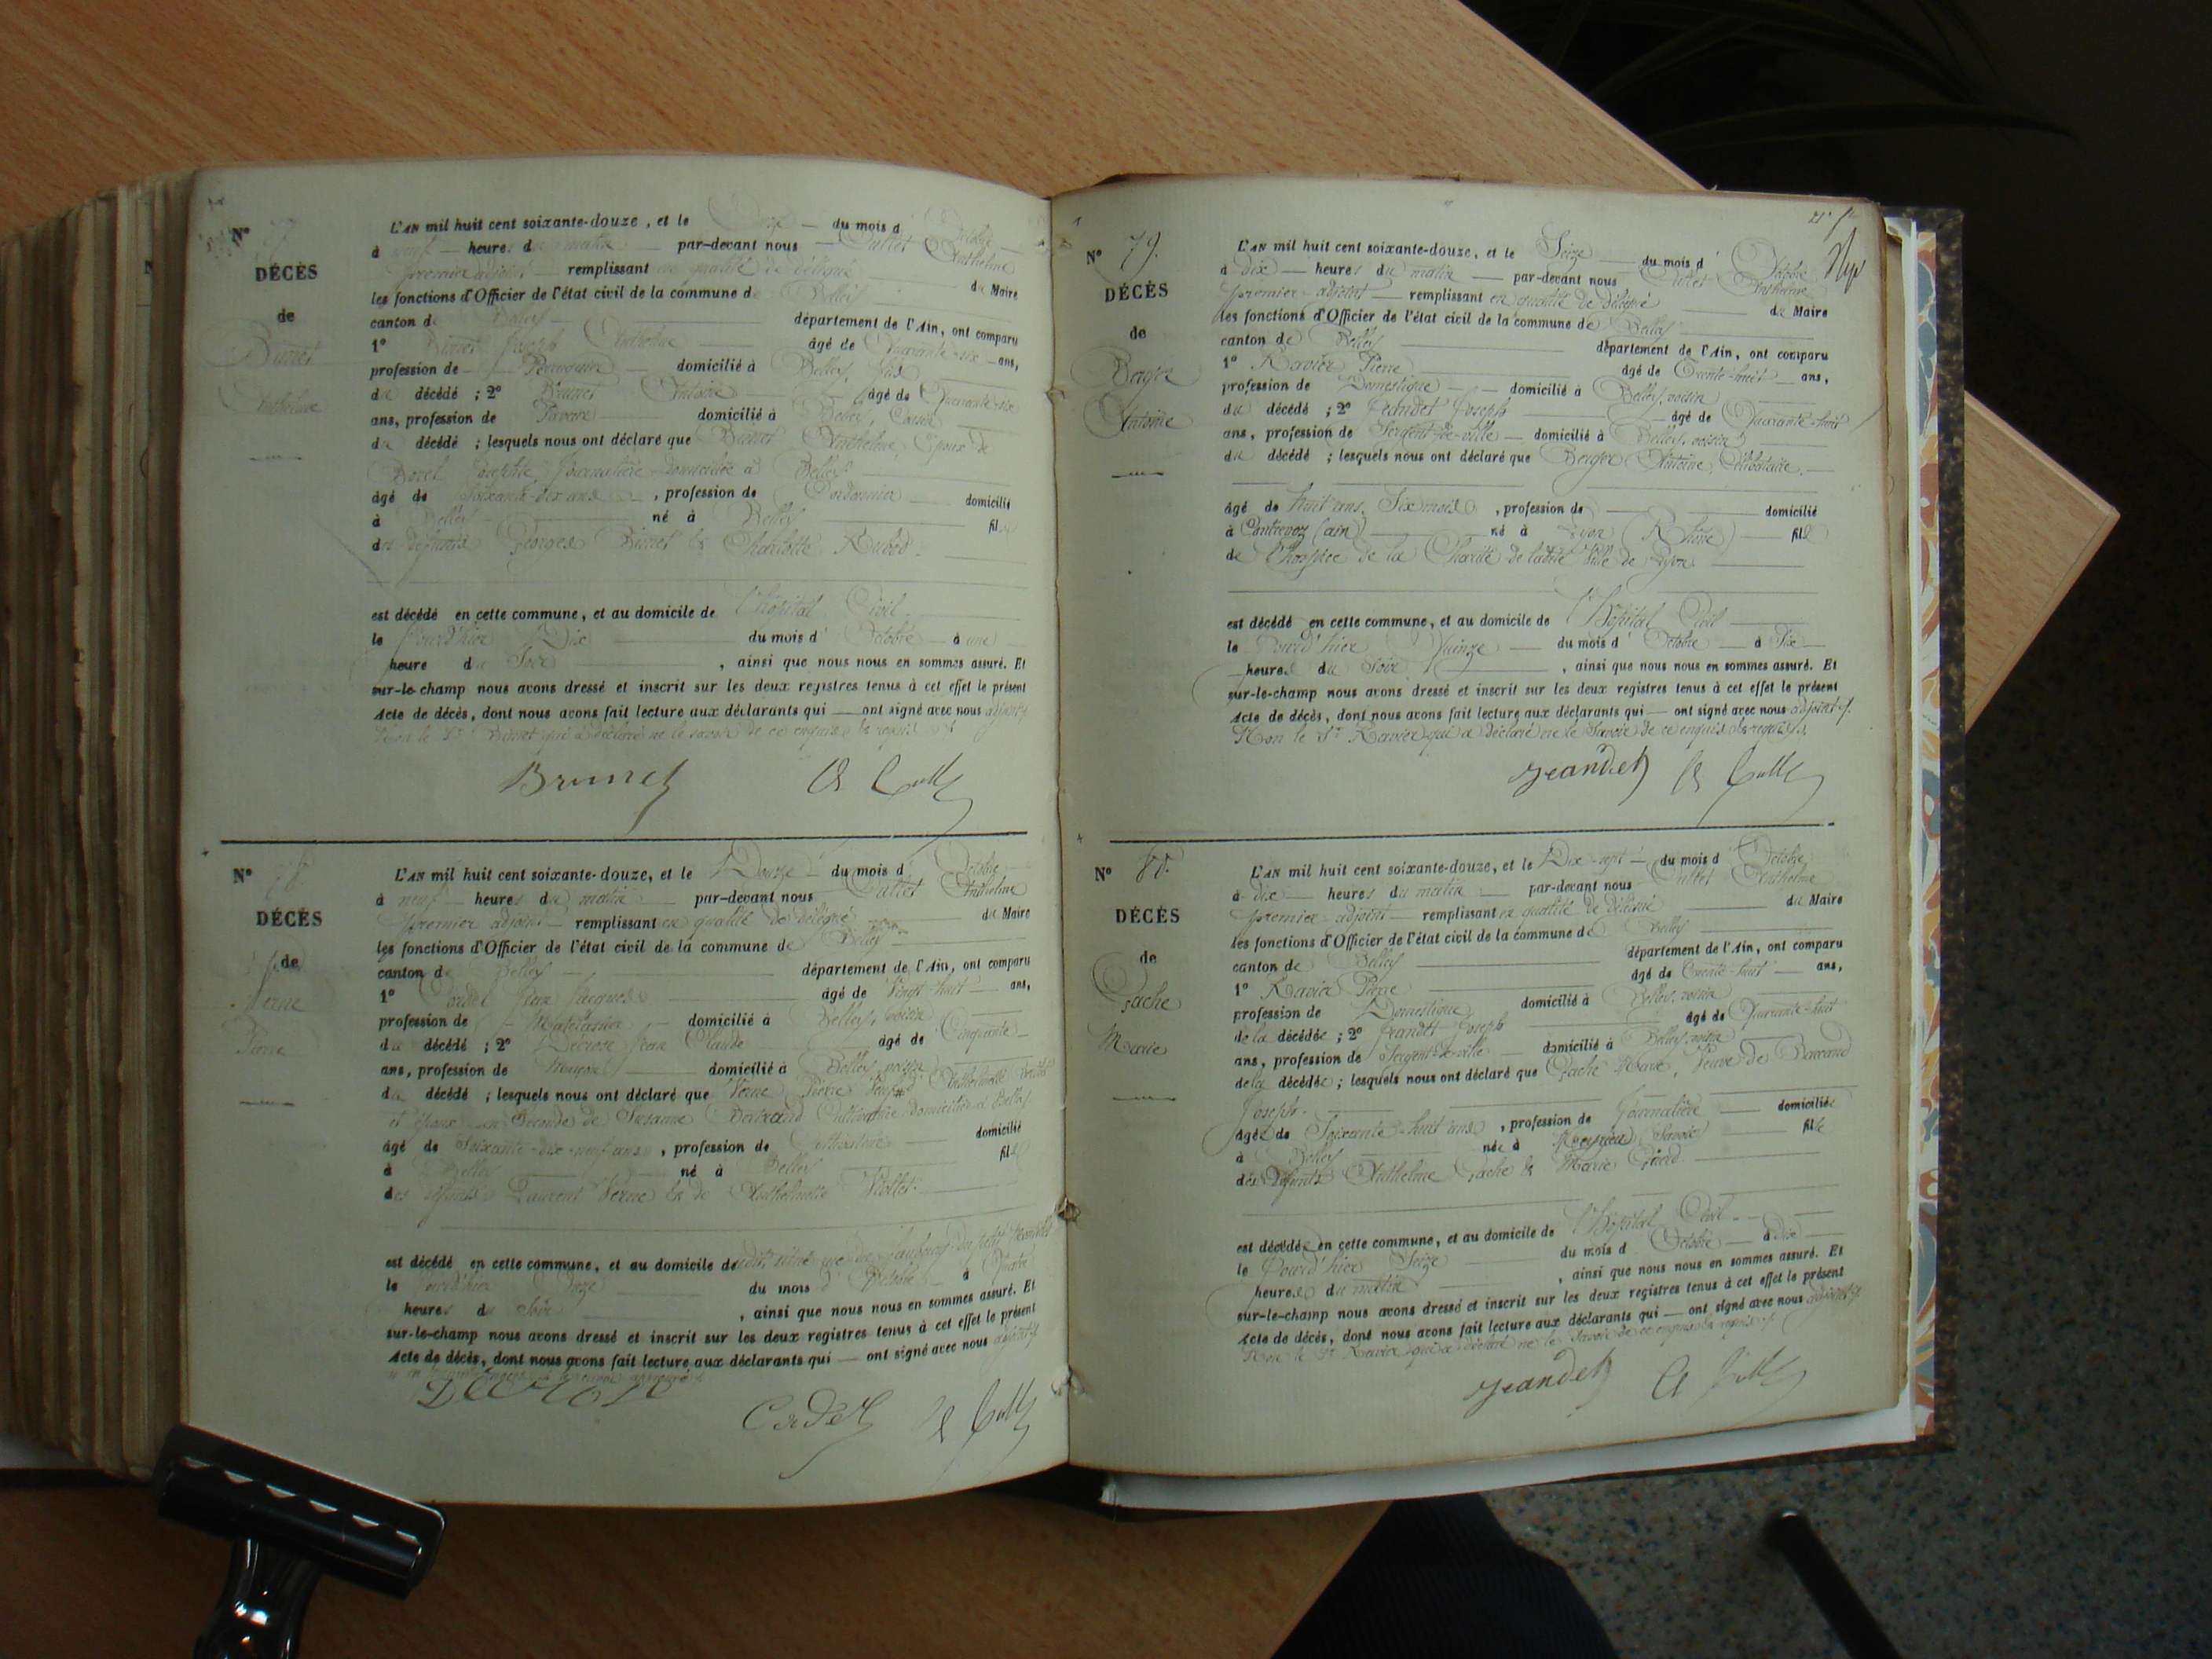 N°
DÉCÈS
de
Brunet
Anthelme
L'AN mil huit cent soixante-douze, et le Onze du mois d' Octobre
à neuf heures du matin par-devant nous Cullet Anthelme
premier adjoint remplissant en qualité de délégué du Maire
les fonctions d'Officier de l'état civil de la commune de Belley
canton de Belley département de l'Ain, ont comparu
1° Brunet Joseph Anthelme âgé de Quarante-six ans,
profession de Perruquier domicilié à Belley, fils
du décédé ; 2° Brunet Antoine âgé de Quarante-six
ans, profession de domicilié à Belley, Cousin
du décédé ; lesquels nous ont déclaré que Brunet Anthelme, Epoux de
Borel Josephte, Journalière domiciliée à Belley
âgé de Soixante-dix ans, profession de Cordonnier domicilié
à Belley né à Belley fils
de défunts Georges Brunet & Charlotte
est décédé en cette commune, et au domicile de l'hôpital Civil
le jourd'hier Dix du mois d' Octobre à une
heure du Soir, ainsi que nous nous en sommes assuré. Et
sur-le-champ nous avons dressé et inscrit sur les deux registres tenus à cet effet le présent
Acte de décès, dont nous avons fait lecture aux déclarants qui ont signé avec nous adjoint
Non le Sr Brunet qui a déclaré ne le savoir de ce enquis & requis
Brunet A Cullet
N° 78
DÉCÈS
de
Verne
Pierre
L'AN mil huit cent soixante-douze, et le Douze du mois d' Octobre
à neuf heures du matin par-devant nous Cullet Anthelme
premier adjoint remplissant en qualité de délégué du Maire
les fonctions d'Officier de l'état civil de la commune de Belley
canton de Belley département de l'Ain, ont comparu
1° Cadet Jean Jacques âgé de Vingt-huit ans,
profession de Matelassier domicilié à Belley, voisin
du décédé ; 2° Decrose Jean Claude âgé de Cinquante
ans, profession de Maçon domicilié à Belley, voisin
du décédé ; lesquels nous ont déclaré que Verne Pierre Veuf Anthelmette
et époux en Seconde de Susanne Cultivatrice domiciliée à Belley
âgé de Soixante-dix-neuf ans, profession de Cultivateur domicilié
à Belley né à Belley fils
des défunts Laurent Verne & de Anthelmette
est décédé en cette commune, et au domicile de
le jourd'hier Onze du mois d' Octobre à Quatre
heures du Soir, ainsi que nous nous en sommes assuré. Et
sur-le-champ nous avons dressé et inscrit sur les deux registres tenus à cet effet le présent
Acte de décès, dont nous avons fait lecture aux déclarants qui ont signé avec nous adjoint
Decrose
Cadet A Cullet
N° 79.
DÉCÈS
de
Berger
Antoine
L'AN mil huit cent soixante-douze, et le Seize du mois d' Octobre
à dix heures du matin par-devant nous Cullet Anthelme
premier adjoint remplissant en qualité de délégué du Maire
les fonctions d'Officier de l'état civil de la commune de Belley
canton de Belley département de l'Ain, ont comparu
1° Ravier Pierre âgé de Trente-huit ans,
profession de Domestique domicilié à Belley, voisin
du décédé ; 2° Jeandet Joseph âgé de Quarante-huit
ans, profession de Sergent-de-ville domicilié à Belley, voisin
du décédé ; lesquels nous ont déclaré que Berger Antoine, Célibataire.
âgé de huit ans, Six mois, profession de domicilié
à Contrevoz (ain) né à Lyon (Rhône) fils
de l'hospice de la Charité de ladite Ville de Lyon
est décédé en cette commune, et au domicile de l'hôpital Civil
le jourd'hier Quinze du mois d' Octobre à Six
heures du Soir, ainsi que nous nous en sommes assuré. Et
sur-le-champ nous avons dressé et inscrit sur les deux registres tenus à cet effet le présent
Acte de décès, dont nous avons fait lecture aux déclarants qui ont signé avec nous adjoint
Non le Sr Ravier qui a déclaré ne le Savoir de ce enquis & requis
Jeandet A Cullet
N° 80.
DÉCÈS
de
Gache
Marie
L'AN mil huit cent soixante-douze, et le Dix-sept du mois d' Octobre
à dix heures du matin par-devant nous Cullet Anthelme
premier adjoint remplissant en qualité de délégué du Maire
les fonctions d'Officier de l'état civil de la commune de Belley
canton de Belley département de l'Ain, ont comparu
1° Ravier Pierre âgé de Trente-huit ans,
profession de Domestique domicilié à Belley, voisin
de la décédée ; 2° Jeandet Joseph âgé de Quarante-huit
ans, profession de Sergent-de-ville domicilié à Belley, voisin
de la décédée ; lesquels nous ont déclaré que Gache Marie, Veuve de
Joseph.
âgée de Soixante-huit ans, profession de Journalière domiciliée
à Belley née à Savoie fille
des défunts Anthelme Gache & Marie
est décédée en cette commune, et au domicile de l'hôpital Civil
le jourd'hier Seize du mois d' Octobre à dix
heures du matin, ainsi que nous nous en sommes assuré. Et
sur-le-champ nous avons dressé et inscrit sur les deux registres tenus à cet effet le présent
Acte de décès, dont nous avons fait lecture aux déclarants qui ont signé avec nous adjoint
Non le Sr Ravier qui a déclaré ne le Savoir de ce enquis & requis
Jeandet A Cullet